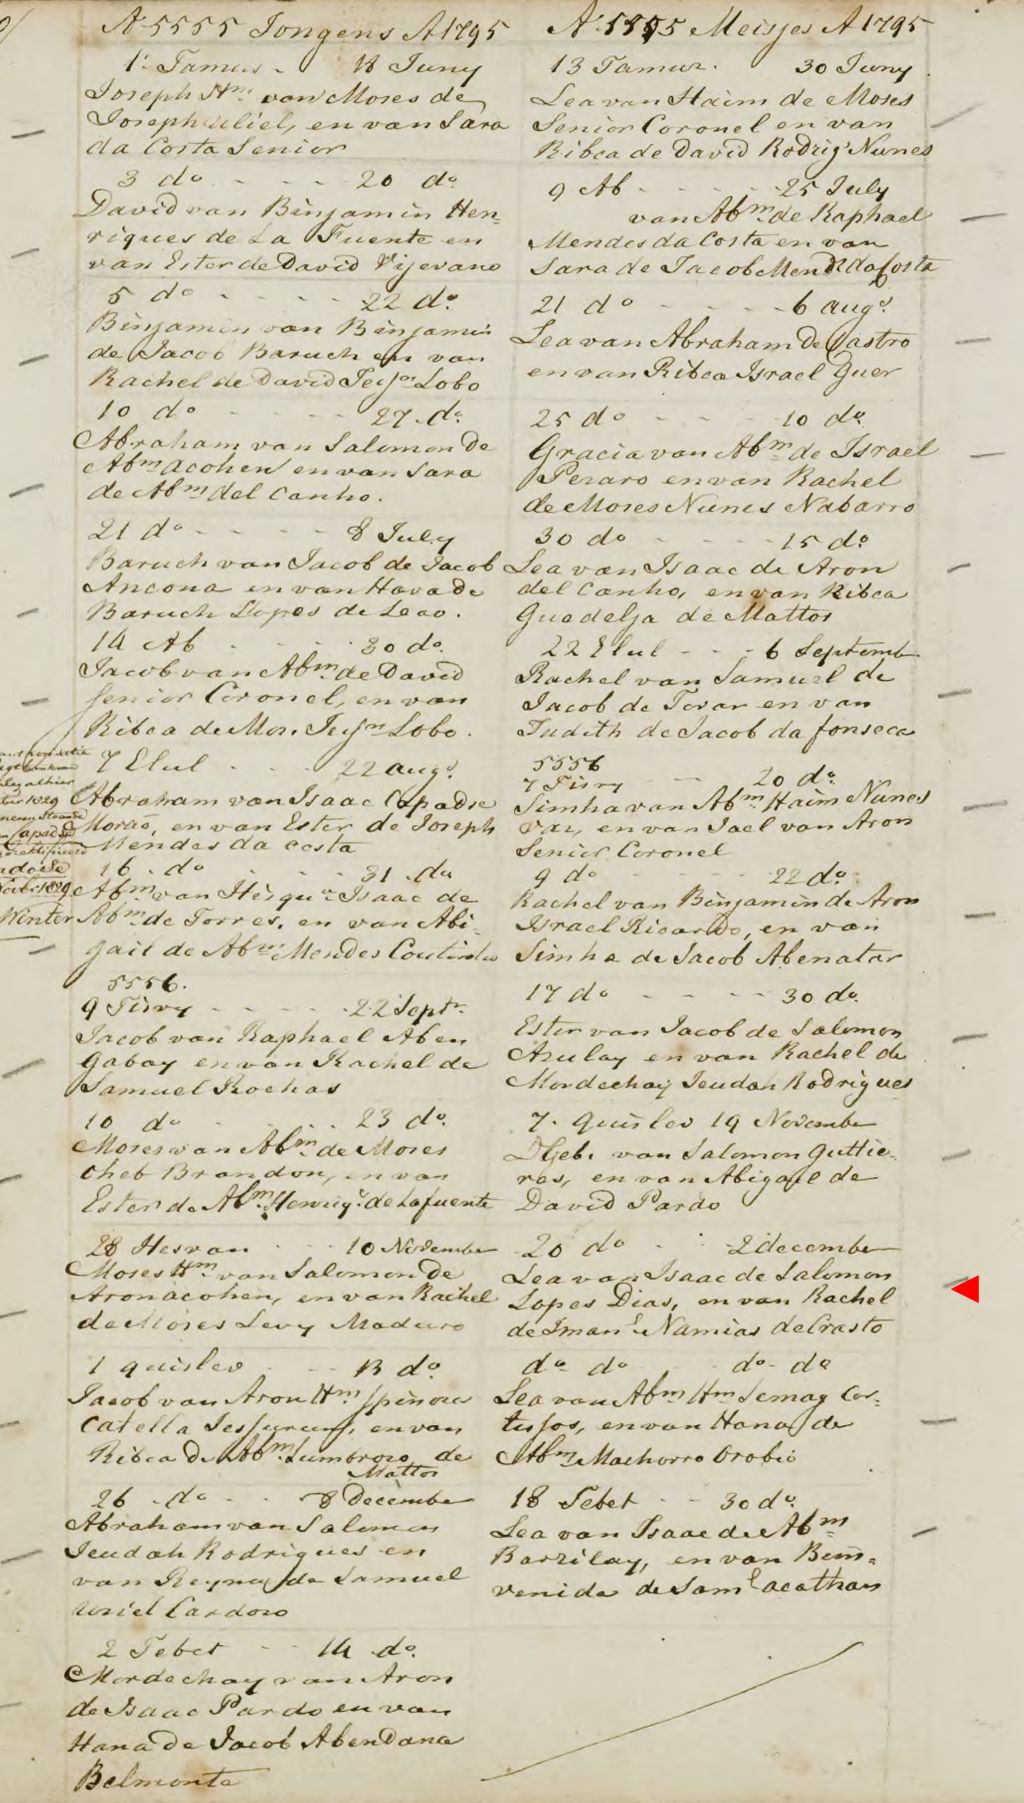 A 5555 Jongens A 1795
1 Tamus 18 Juny
Joseph Hm van Moses de
Joseph Uliel, en van Sara
da Costa Senior
3 do 20 do
David van Binjamin Hen-
riques de La Fuente en
van Ester de David Vijevano
5 do 22 do
Binjamin van Binjamin
de Jacob Baruch en van
Rachel de David Jesn Lobo
10 do 27 do
Abraham van Salomon de
Abm acohen en van Sara
de Abm del Canho.
21 do 8 July
Baruch van Jacob de Jacob
Ancona en van Hava de
Baruch Lopes de Leao.
14 Ab 30 do
Jacob van Abm de David
Senior Coronel, en van
Ribca de Mos. Jesn Lobo.
7 Elul 22 augo
Abraham van Isaac Capadse
Morao, en van Ester de Joseph
Mendes da Costa
16 do 31 do
Abm van Hisqa Isaac de
Abm de Torres, en van Abi-
gail de Abm Mendes Coutinho
5556.
9 Tisry 22 Septr
Jacob van Raphael Aben
Gabay en van Rachel de
Samuel Rochas
10 do 23 do
Moses van Abm de Moses
Oheb Brandon, en van
Ester de Abm Henriqs de Lafuente
28 Hesvan 10 November
Moses Hm van Salomon de
Aron acohen, en van Rachel
de Moses Levy Maduro
1 quislev 13 do
Jacob van Aron Hm Spinosa
Catella Jessurun, en van
Ribca de Abm Lumbroso de
Mattos
26 do 8 December
Abraham van Salomon
Jeudah Rodrigues en
van Reyna de Samuel
Uriel Cardozo
2 Tebet 14 do
Mordechay van Aron
de Isaac Pardo en van
Hana de Jacob Abendana
Belmonte
A 5555 Meisjes A 1795
13 Tamuz 30 Juny
Lea van Haim de Moses
Senior Coronel en van
Ribca de David Rodrigs Nunes
9 Ab 25 July
van Abm de Raphael
Mendes da Costa en van
Sara de Jacob Mends da Costa
21 do 6 augo
Lea van Abraham De Castro
en van Ribca Israel Guer
25 do 10 do
Gracia van Abm de Israel
Pezaro en van Rachel
de Moses Nunes Nabarro
30 do 15 do
Lea van Isaac de Aron
del Canho, en van Ribca
Guedelja de Mattos
22 Elul 6 Septemb
Rachel van Samuel de
Jacob de Tovar en van
Judith de Jacob da fonseca
5556
7 Tisry 20 do
Simha van Abm Haim Nunes
Vaz, en van Jael van Aron
Senior Coronel
9 do 22 do
Rachel van Binjamin de Aron
Israel Ricardo, en van
Simha de Jacob Abenatar
17 do 30 do
Ester van Jacob de Salomon
Azulay en van Rachel de
Mordechay Jeudah Rodrigues
7. Quislev 19 November
Deb. van Salomon Guttie-
ras, en van Abigael de
David Pardo
20 do 2 december
Lea van Isaac de Salomon
Lopes Dias, en van Rachel
de Imanl Namias de Crasto
do do do do
Lea van Abm Hm Semag Cor-
tissos, en van Hana de
Abm Machorro Orobio
18 Tebet 30 do
Lea van Isaac de Abm
Barzilay, en van Bem-
venida de Saml acathan
Winter